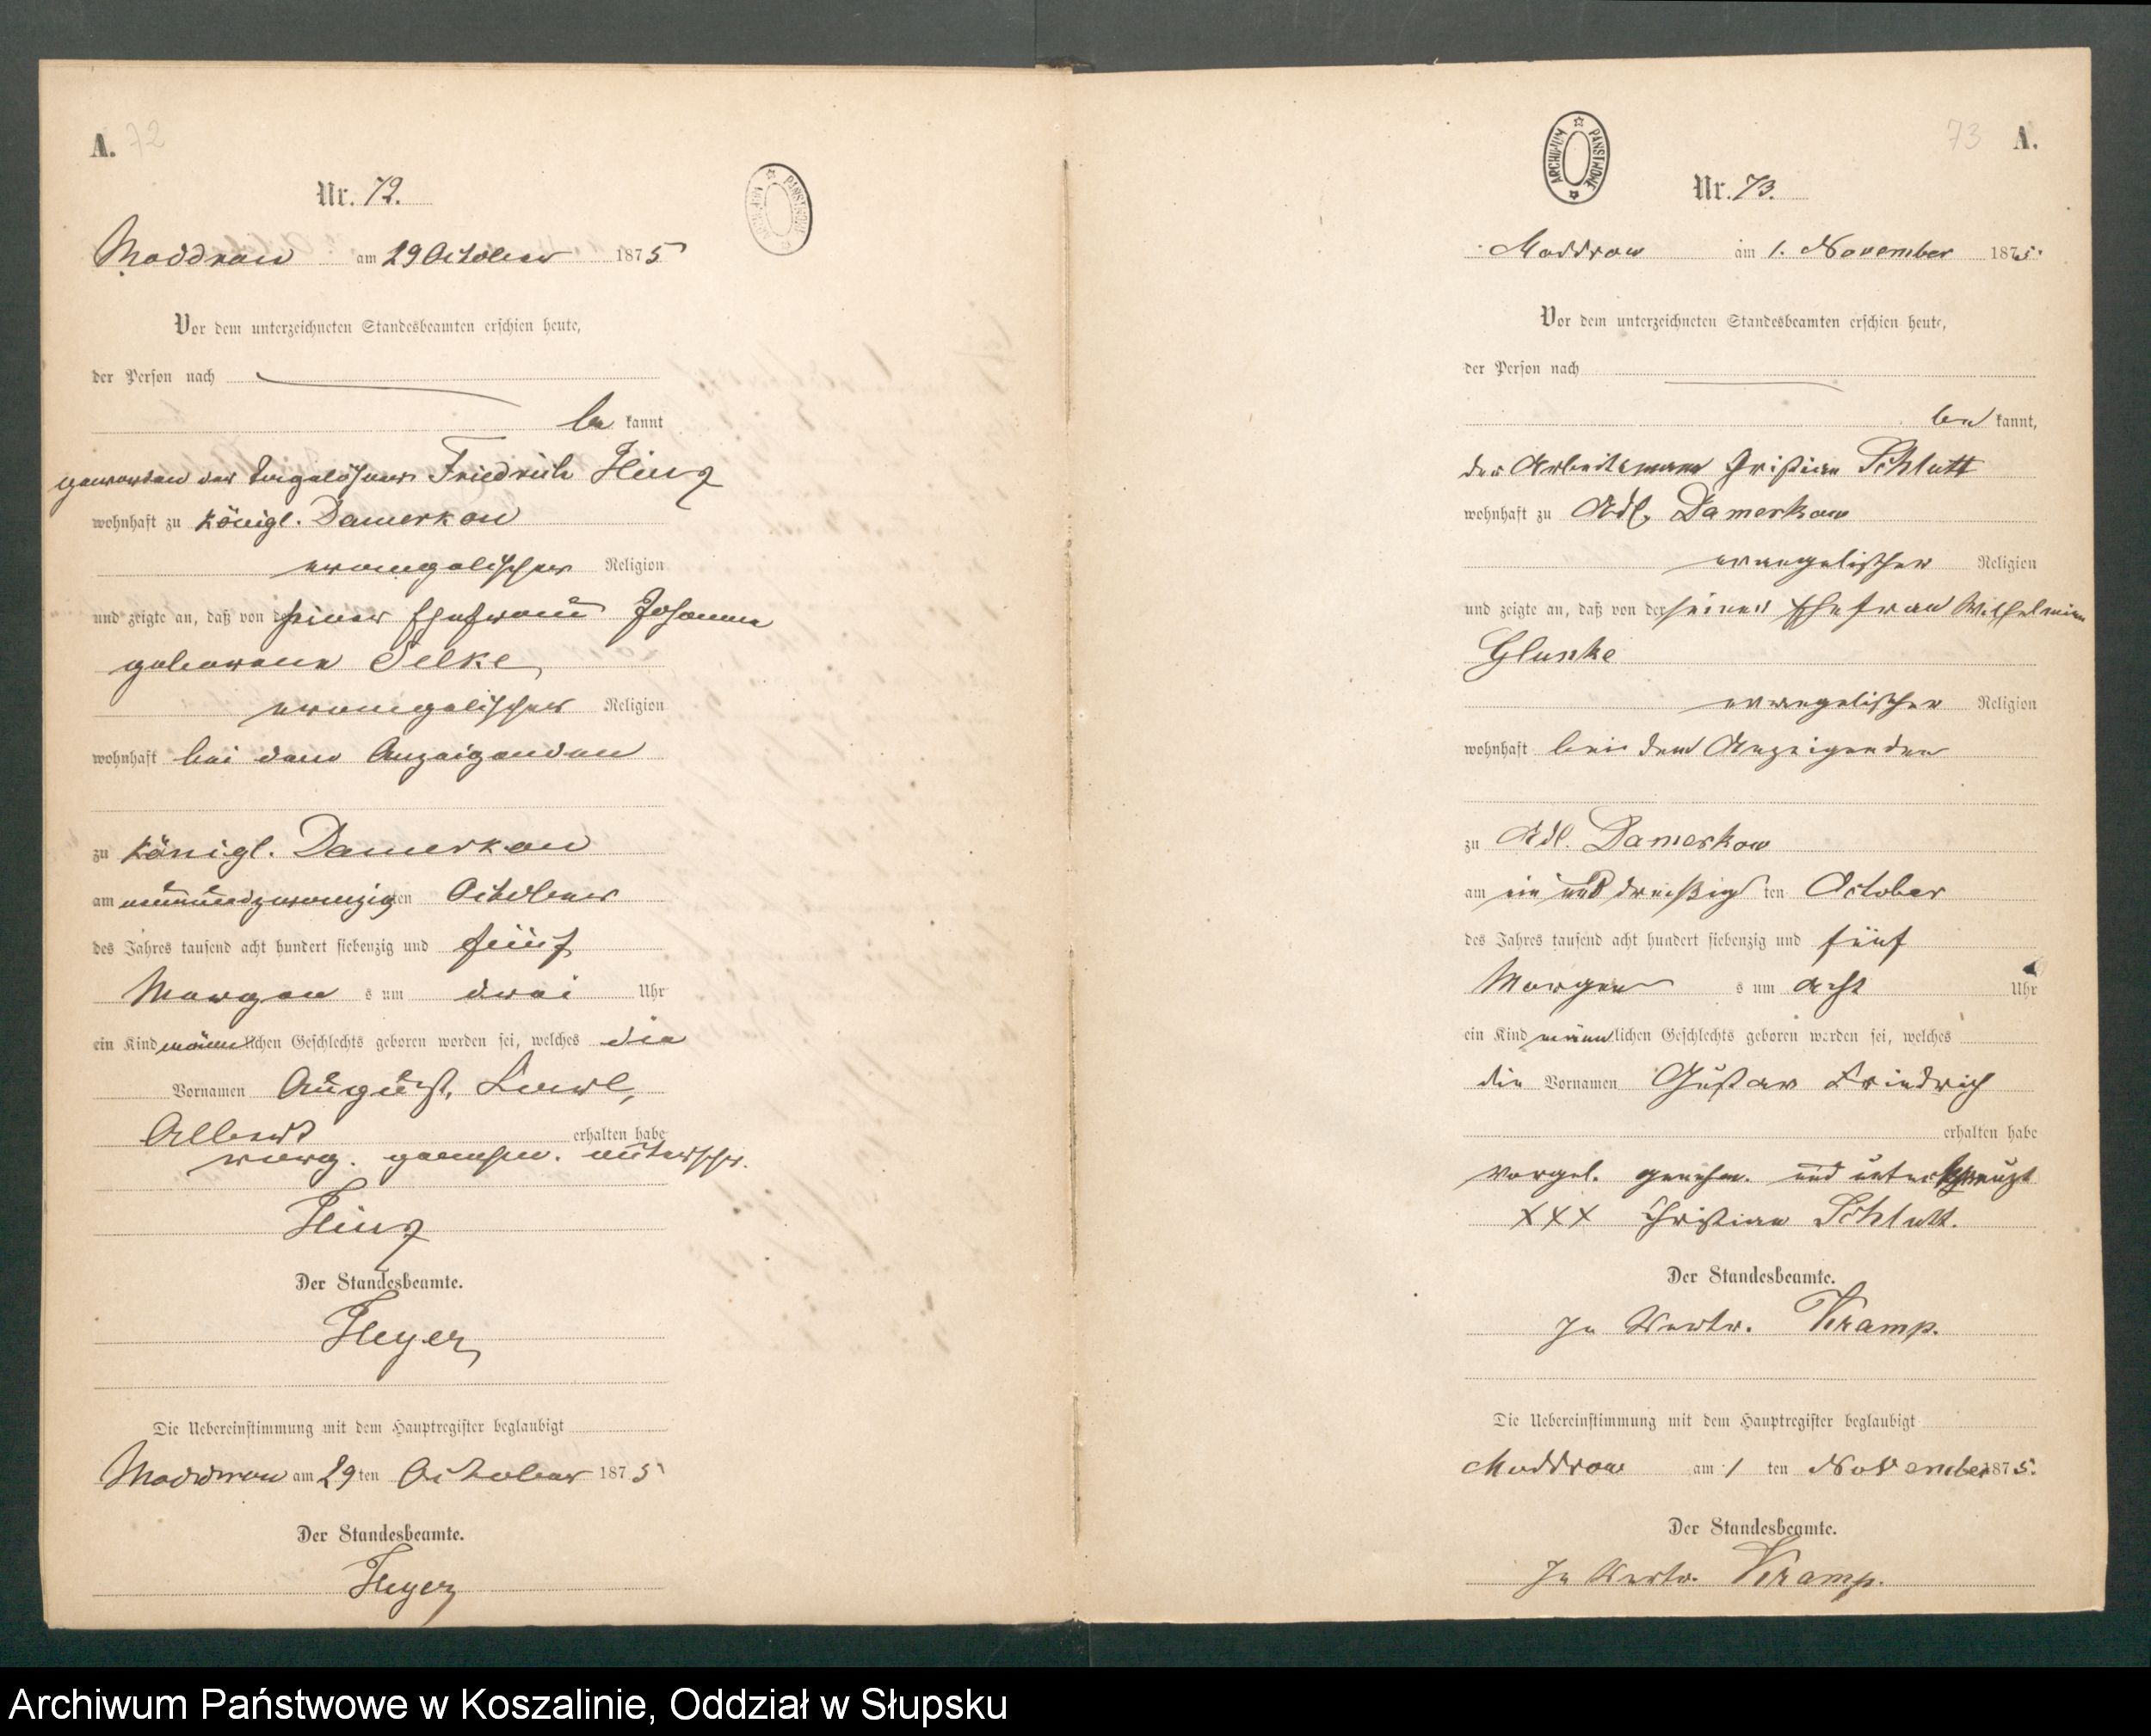 A. 72
Nr. 72.
ARCHIWUM PAŃSTWOWE
Moddrow am 29 October 1875
Vor dem unterzeichneten Standesbeamten erschien heute,
der Person nach
be kannt
geworden der Tagelöhner Friedrich Hinz
wohnhaft zu Königl. Damerkow
evangelischer Religion
und zeigte an, daß von der seiner Ehefrau Johanna
geborene Selke
evangelischer Religion
wohnhaft bei dem Anzeigenden
zu Königl. Damerkow
am neunundzwanzigten October
des Jahres tausend acht hundert siebenzig und fünf
Morgen s um drei Uhr
ein Kind männlichen Geschlechts geboren worden sei, welches die
Vornamen August, Carl,
Albert erhalten habe
vorg. genehm. unterschr.
Hinz
Der Standesbeamte.
Heyer
Die Uebereinstimmung mit dem Hauptregister beglaubigt
Moddrow am 29 ten October 1875
Der Standesbeamte.
Heyer
73 A.
ARCHIWUM PAŃSTWOWE
Nr. 73.
Moddrow am 1. November 1875.
Vor dem unterzeichneten Standesbeamten erschien heute,
der Person nach
be kannt,
der Arbeitsmann Christian Schlutt
wohnhaft zu Adl. Damerkow
evangelischer Religion
und zeigte an, daß von der seiner Ehefrau Wilhelmine
Glunke
evangelischer Religion
wohnhaft bei dem Anzeigenden
zu Adl. Damerkow
am ein und dreißig ten October
des Jahres tausend acht hundert siebenzig und fünf
Morgen s um acht Uhr
ein Kind männlichen Geschlechts geboren worden sei, welches
die Vornamen Gustav Friedrich
erhalten habe
vorgel. genehm. und unterkreuzt
XXX Christian Schlutt.
Der Standesbeamte.
In Vertr. Kramp.
Die Uebereinstimmung mit dem Hauptregister beglaubigt
Moddrow am 1 ten November 1875.
Der Standesbeamte.
In Vertr. Kramp.
Archiwum Państwowe w Koszalinie, Oddział w Słupsku